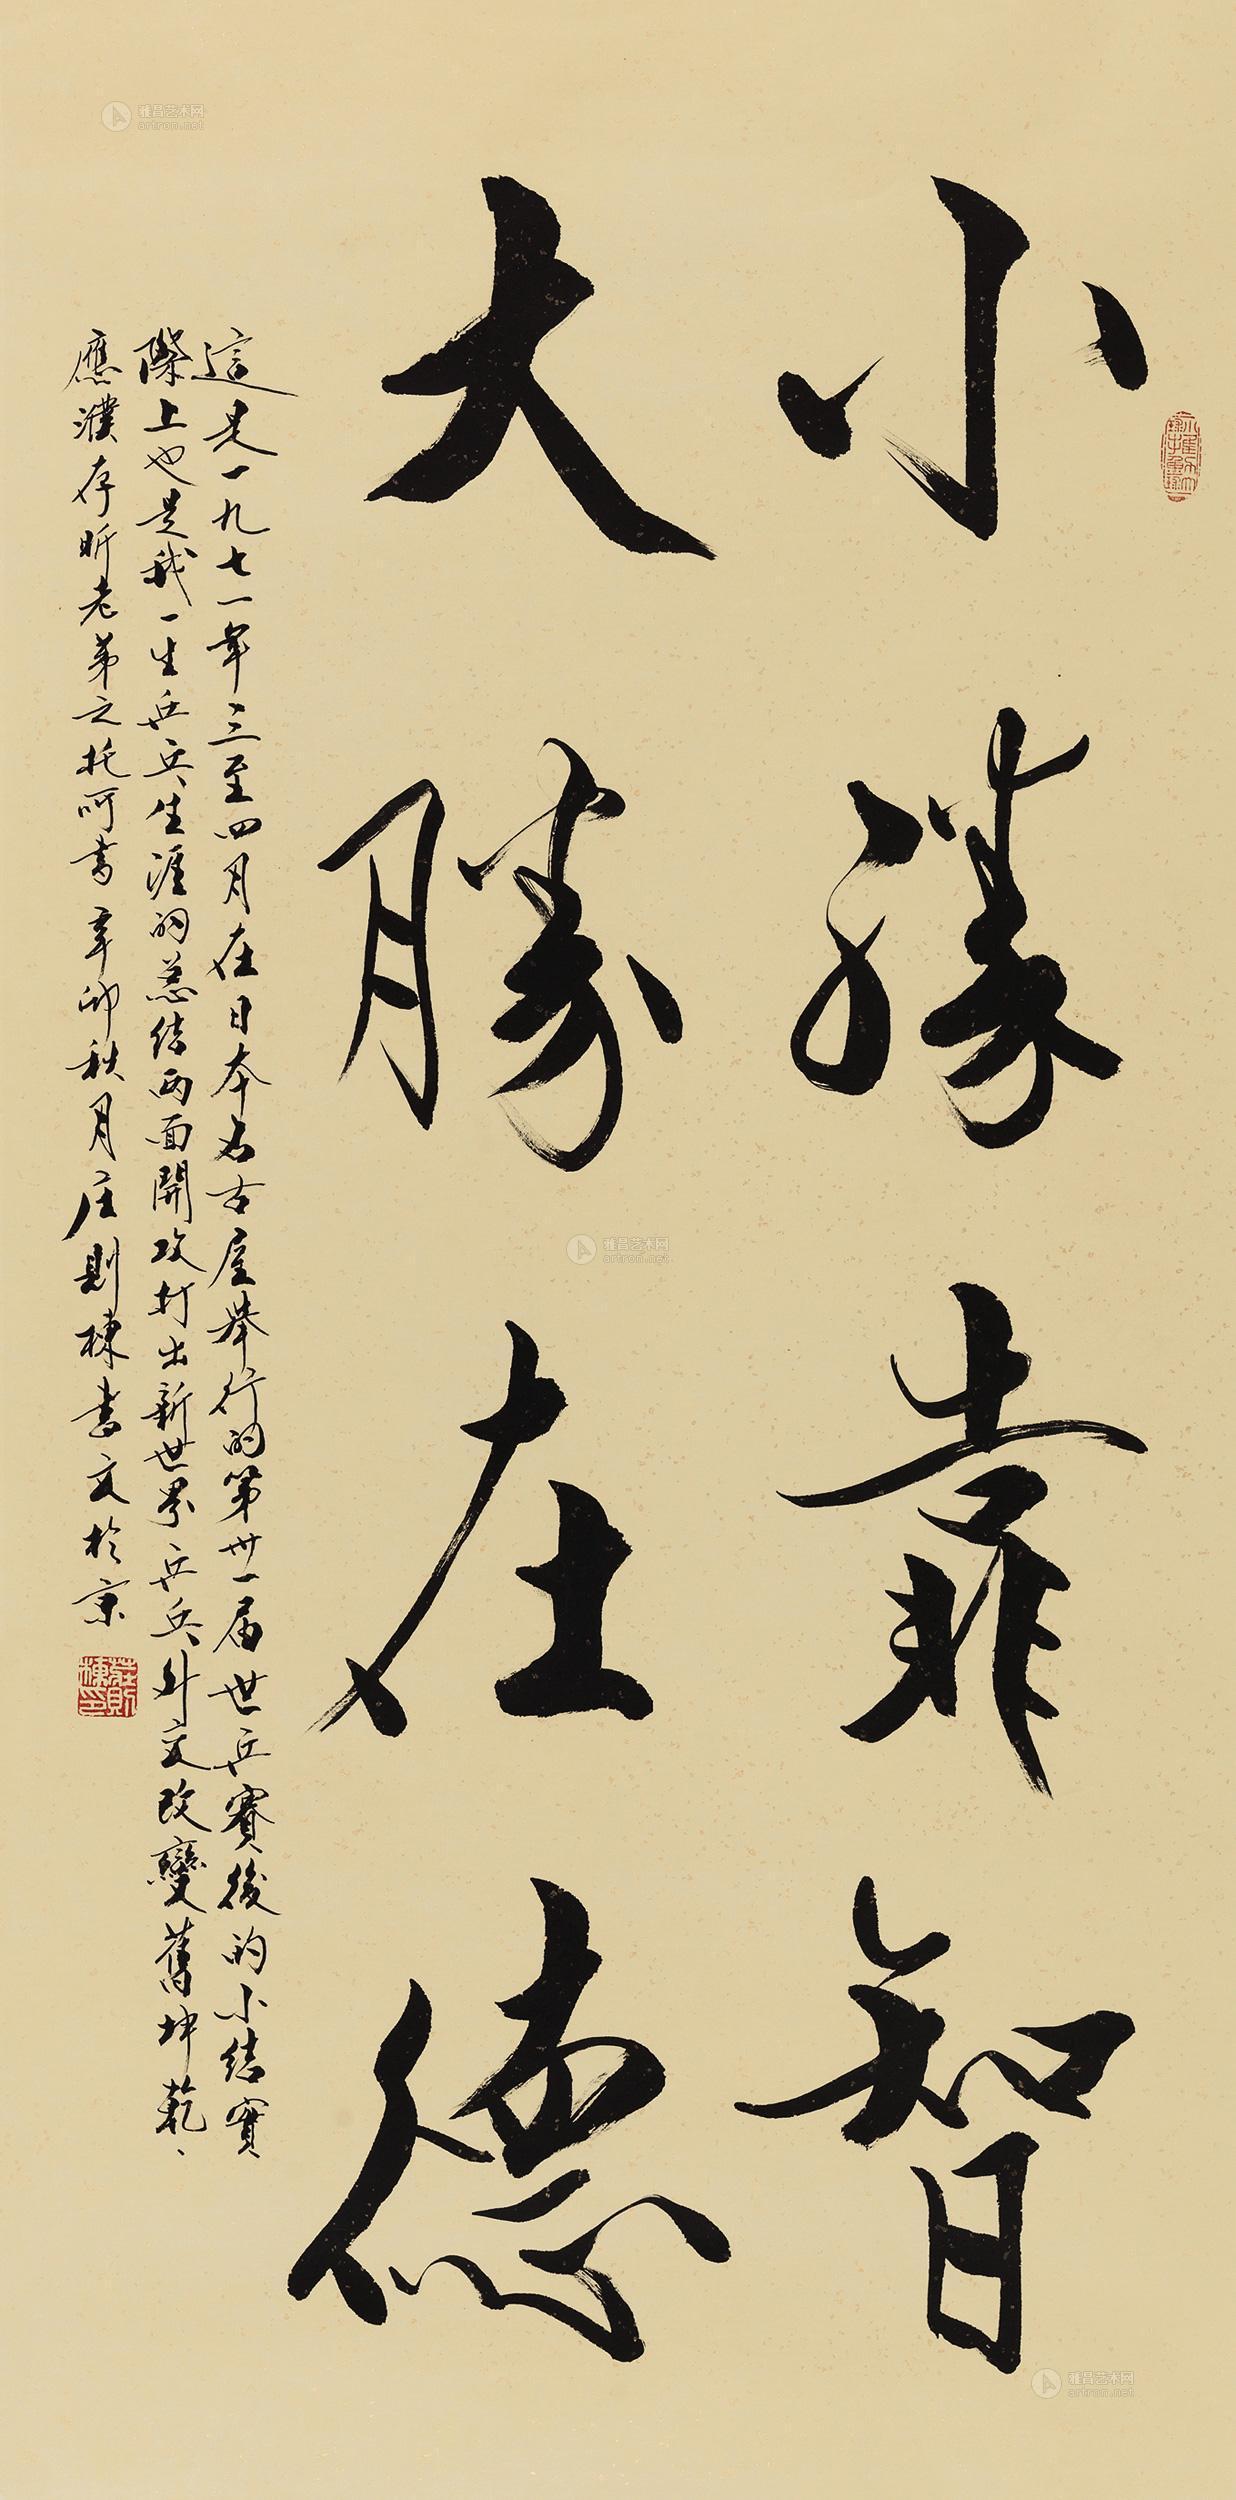 小勝靠智
大勝在德
這是一九七一年三至四月在日本名古屋舉行的第卅一届世乒賽後的小結實
際上也是我一生乒乓生涯的总结两面開攻打出新世界乒乓外交改變舊坤乾
應濮存昕老弟之托呵書辛卯秋月庄則棟書文於京
莊則棟印
雅昌艺术网
artron.net
雅昌艺术网
artron.net
雅昌艺术网
artron.net